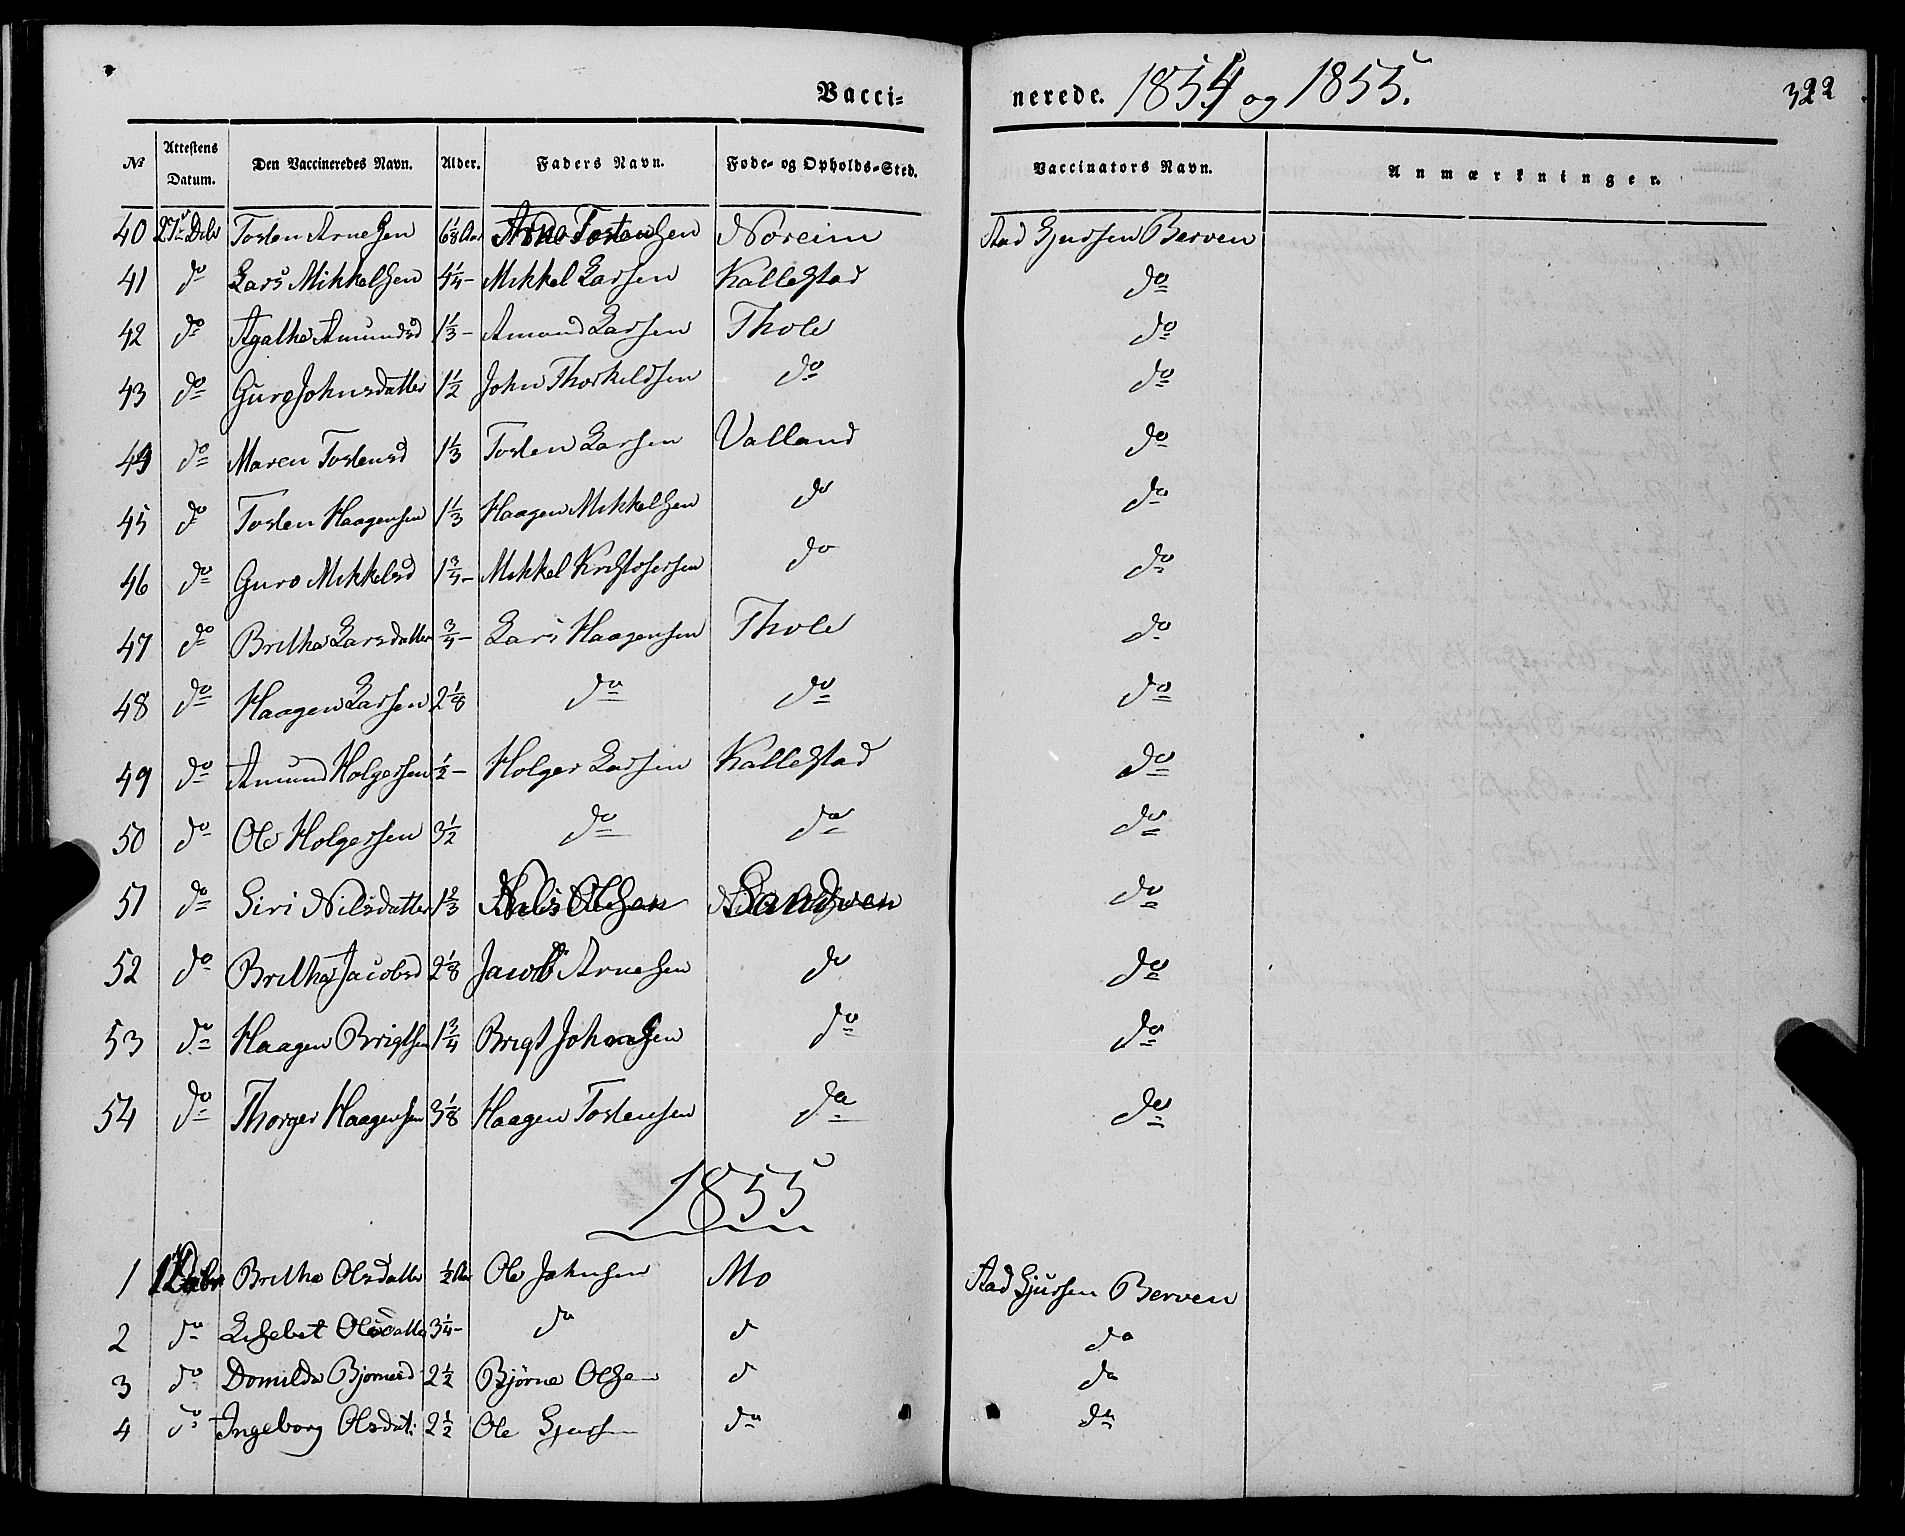 Vacci- nerede. 1854 og 1855. 322
No Attestens Datum. Den Vaccineredes Navn. Alder. Faders Navn. Føde- og Opholds-Sted. Vaccinators Navn. Anmærkninger.
40 27 Dcbr Tosten Arnesen 6 1/8 Aar Arne Tostensen Noreim Aad Gjursen Berven
41 do Lars Mikkelsen 4 1/4 - Mikkel Larsen Kallestad do
42 do Agatha Amundsd 1 1/3 - Amund Larsen Thole do
43 do Guro Johnsdatter 1 1/2 John Thorkeldsen do do
44 do Maren Tostensd 1 1/3 Tosten Larsen Valland do
45 do Tosten Haagensen 1 1/3 Haagen Mikkelsen do do
46 do Guro Mikkelsd 1 3/4 - Mikkel Kristofersen do do
47 do Britha Larsdatter 3/4 - Lars Haagensen Thole do
48 do Haagen Larsen 2 1/8 do do do
49 do Amund Holgersen 1/2 - Holger Larsen Kallestad do
50 do Ole Holgersen 3 1/2 do do do
51 do Siri Nilsdatter 1 2/3 Nils Olsen Sandven do
52 do Britha Jacobsd 2 1/8 Jacob Arnesen do do
53 do Haagen Brigtsen 1 3/4 Brigt Johnsen do do
54 do Thorger Haagensen 3 1/8 Haagen Tostensen do do
1855
1 Dcbr Britha Olsdatter 1/2 Aar Ole Johnsen Mo Aad Gjursen Berven
2 do Lisebet Olsdatter 3 1/4 - do d do
3 do Domilda Bjørnesd 2 1/2 Bjørne Olsen d do
4 do Ingeborg Olsdat: 2 1/2 Ole Gjursen do do